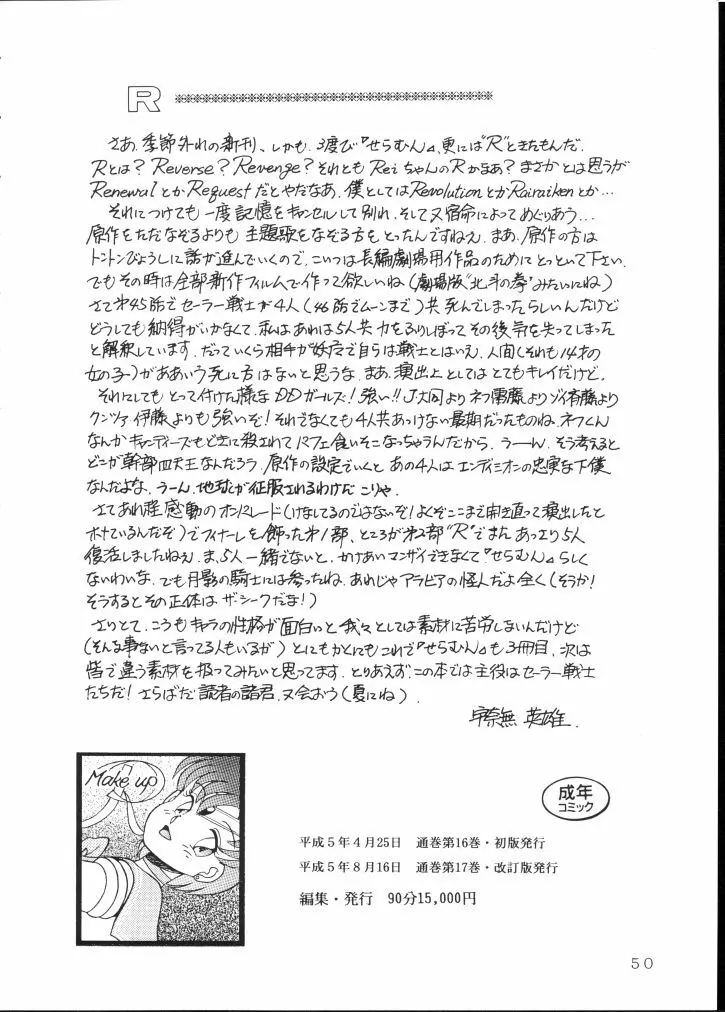 R
さあ、季節外れの新刊、しかも、3度び『せらむん』、更には“R”ときたもんだ。
Rとは？Reverse？Revenge？それとも ReiちゃんのRかなあ？まさかとは思うが
RenewalとかRequestだとやだなあ。僕としてはRevolutionとかRairaikenとか…
それにつけても一度記憶をキャンセルして別れ、そして又宿命によってめぐりあう…
原作をただなぞるよりも主題歌をなぞる方をとったんですねえ。まあ、原作の方は
トントンびょうしに話が進んでいくので、こいつは長編劇場用作品のためにとっといて下さい。
でもその時は全部新作フィルムで作って欲しいね(劇場版“北斗の拳”みたいにね)
さて第45話でセーラー戦士が4人(46話でムーンまで)共死んでしまったらしいんだけど
どうしても納得がいかなくて、私はあれは5人共力をふりしぼってその後気を失ってしまった
と解釈しています。だっていくら相手が妖魔で自らは戦士とはいえ、人間(それも14才の
女の子)がああいう死に方はないと思うな。まあ、演出上としてはとてもキレイだけど。
それにしてもとって付けた様なDDガールズ！強い!!J大同よりネフ雷藤よりゾイ斉藤より
クンツァ伊藤よりも強いぞ！それでなくても4人共あっけない最期だったものね。ネフくん
なんかキャンディーズもどきに殺されてパフェ食いそこなっちゃうんだから、うーん、そう考えると
どこが幹部四天王なんだろう。原作の設定でいくとあの4人はエンディミオンの忠実な下僕
なんだよな。うーん、地球が征服されるわけだ こりゃ。
さてあれ程感動のオンパレード(けなしてるのではないぞ！よくぞここまで開き直って演出したと
ホメているんだぞ)でフィナーレを飾った第1部、ところが第2部“R”でまたあっさり5人
復活しましたねえ。ま、5人一緒でないと、かけあいマンザイできなくて『せらむん』らしく
ないわいな。でも月影の騎士には参ったね。あれじゃアラビアの怪人だよ全く(そうか！
そうするとその正体はザ・シークだな！)
さりとて、こうもキャラの性格が面白いと我々としては素材に苦労しないんだけど
(そんな事ないと言ってる人もいるが)とにもかくにもこれで『せらむん』も3冊目、次は
皆で違う素材を扱ってみたいと思ってます。とりあえず、この本では主役はセーラー戦士
たちだ！さらばだ読者の諸君、又会おう(夏にね)
宇奈無 英雄.
Make up
成年
コミック
平成5年4月25日 通巻第16巻・初版発行
平成5年8月16日 通巻第17巻・改訂版発行
編集・発行 90分15,000円
50